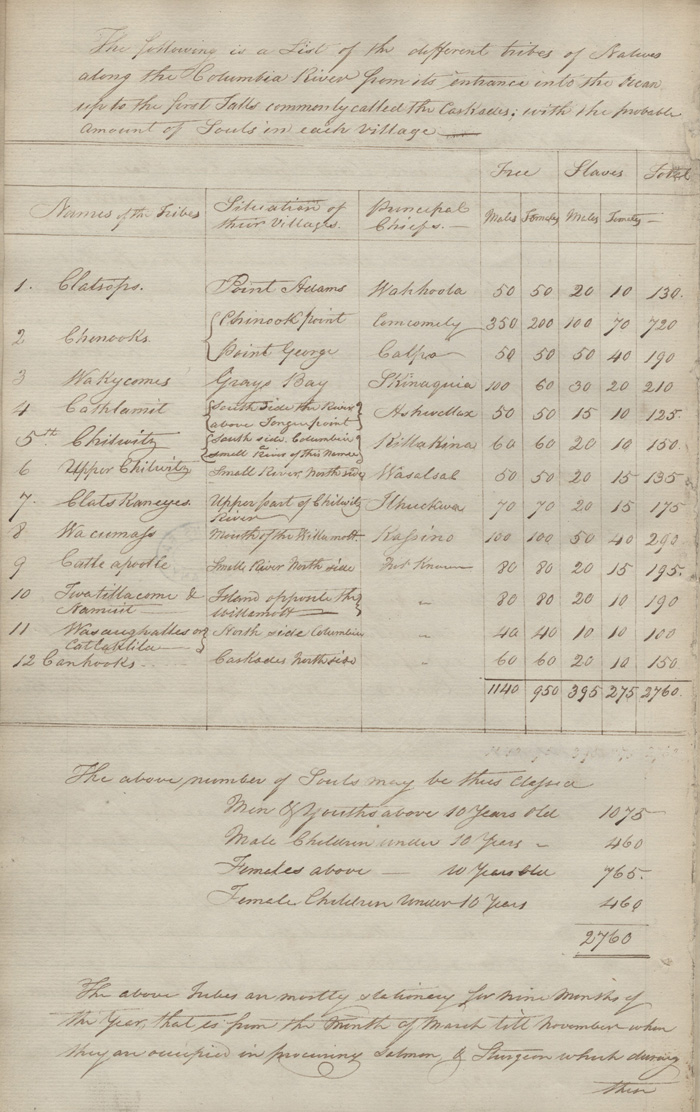 The following is a List of the different tribes of Natives
along the Columbia River from its entrance into the Ocean
up to the first Falls commonly called the Caskades; with the probable
amount of Souls in each Village
Free Slaves Total
Names of the Tribes Situation of their Villages. Principal Chiefs. Males Females Males Females
1. Clatsops. Point Adams Wakhoola 50 50 20 10 130.
2 Chenooks. { Chinook point Comcomely 350 200 100 70 720
Point George Calpo 50 50 50 40 190
3 Wakycomes Grays Bay Skinaquia 100 60 30 20 210
4 Cathlamit { South Side the River above Tongue point } 50 50 15 10 125.
5th Chilwitz { South side Columbia small River of this Name } Killakina 60 60 20 10 150.
6 Upper Chilwitz Small River, North side Wasalsal 50 50 20 15 135
7. Clats Kaneyes. Upper part of Chilwitz River 70 70 20 15 175
8 Wacumass Mouth of the Willamott Kassino 100 100 50 40 290
9 Cathlapootle Small River North side Not Known 80 80 20 15 195.
10 Twatillacome & Namuit Island opposite the Willamott } " 80 80 20 10 190
11 or } North side Columbia " 40 40 10 10 100
12 Canhooks Caskades North side " 60 60 20 10 150
1140 950 395 275 2760.
The above number of Souls may be thus Classed
Men & Youths above 10 Years Old 1075
Male Children under 10 Years 460
Females above — 10 Years Old 765.
Female Children under 10 Years 460
2760
The above Tribes are mostly stationary for Nine Months of
the Year, that is from the Month of March till November when
they are occupied in procuring Salmon, & Sturgeon which during
these